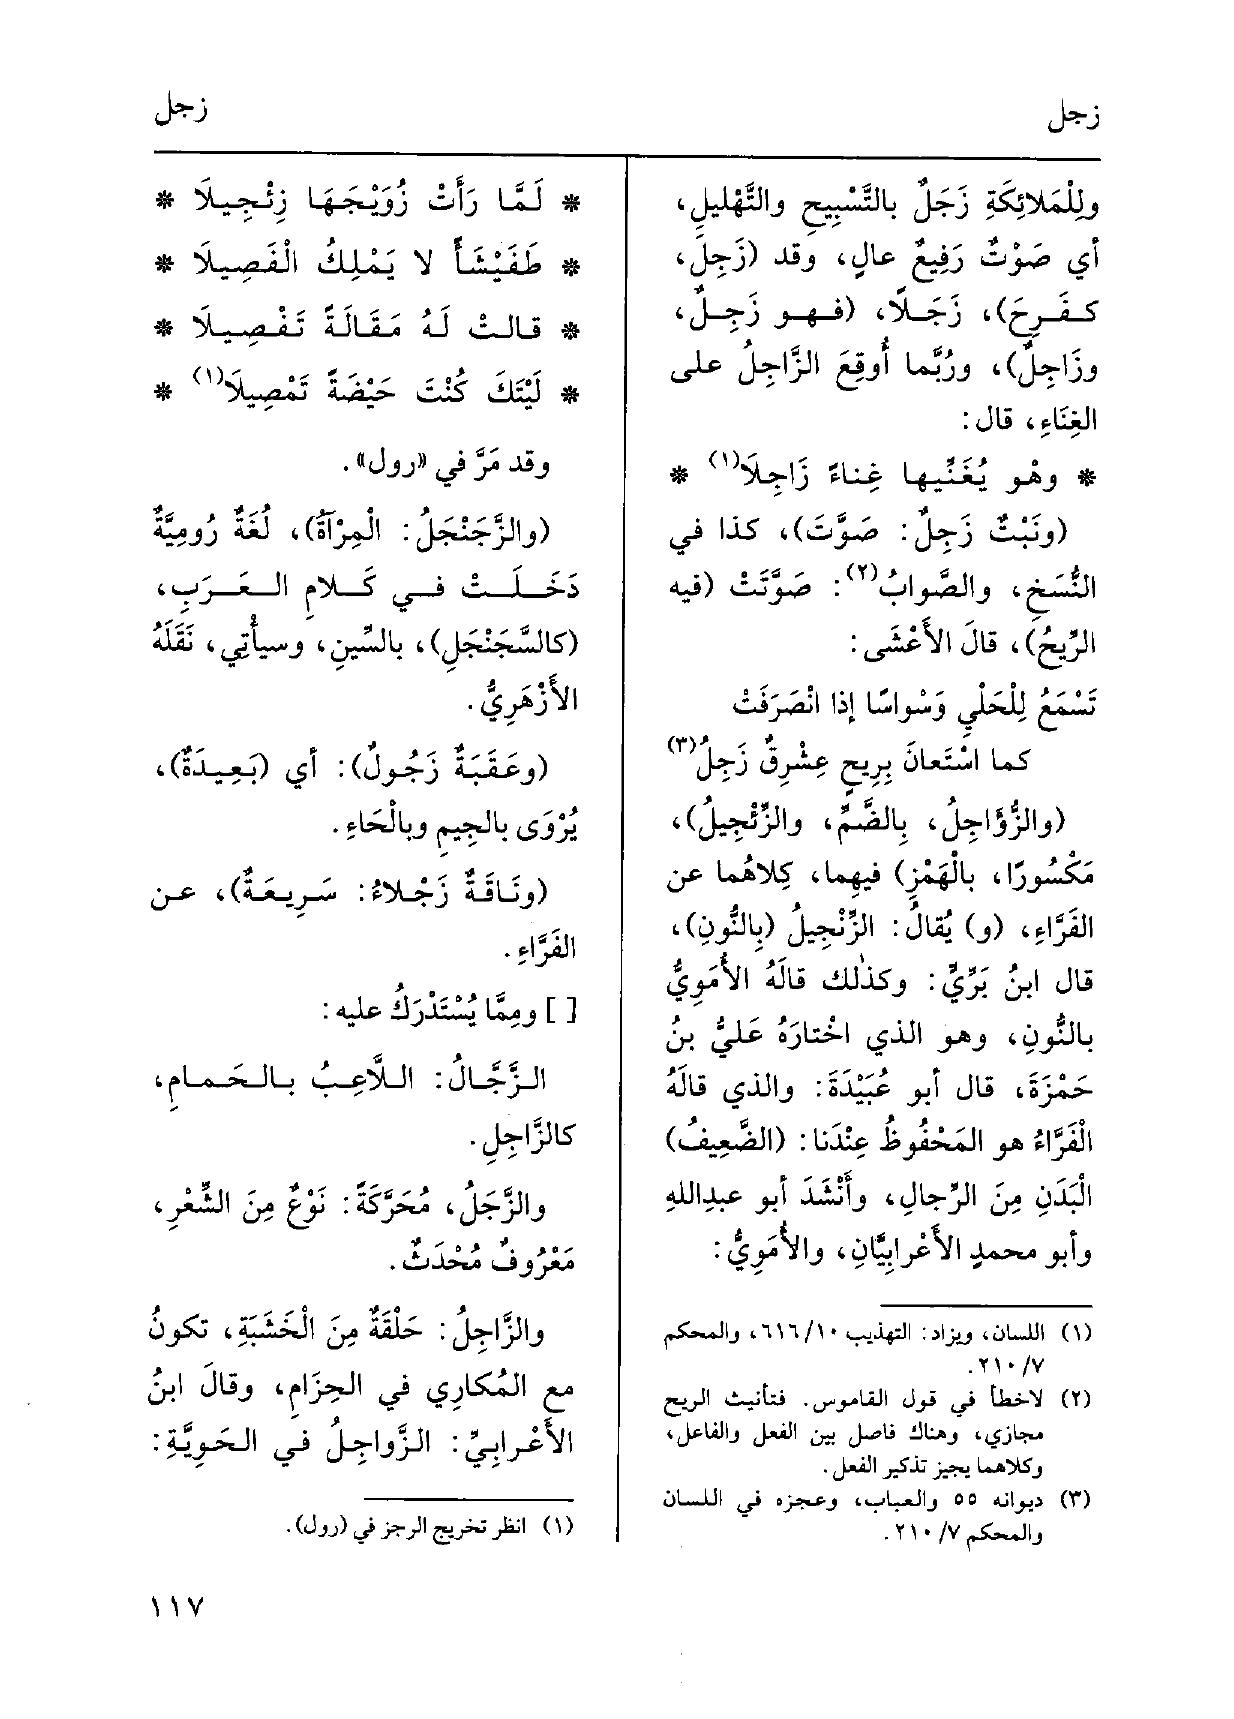 زجل
زجل
ولِلْمَلائِكَةِ زَجَلٌ بالتَّسْبِيحِ والتَّهْلِيلِ،
أي صَوْتٌ رَفِيعٌ عالٍ، وقد (زَجِلَ،
كـفَـرِحَ)، زَجَـلًا، (فـهـو زَجِـلٌ،
وزَاجِلٌ)، ورُبَّما أُوقِعَ الزَّاجِلُ على
الغِنَاءِ، قال:
* وهْو يُغَنِّيها غِناءً زَاجِلَا(١) *
(ونَبْتٌ زَجِلٌ: صَوَّتَ)، كذا في
النُّسَخِ، والصَّوابُ(٢): صَوَّتَتْ (فيه
الرِّيحُ)، قالَ الأَعْشَى:
تَسْمَعُ لِلْحَلْيِ وَسْواسًا إذا انْصَرَفَتْ
كما اسْتَعانَ بِرِيحٍ عِشْرِقٌ زَجِلُ(٣)
(والزُّؤَاجِلُ، بِالضَّمِّ، والزِّئْجِيلُ)،
مَكْسُورًا، بالْهَمْزِ) فيهما، كِلاهُما عن
الفَرَّاءِ، (و) يُقالُ: الزِّنْجِيلُ (بِالنُّونِ)،
قال ابنُ بَرِّيٍّ: وكذٰلك قالَهُ الأُمَوِيُّ
بالنُّونِ، وهو الذي اخْتارَهُ عَليُّ بنُ
حَمْزَةَ، قال أبو عُبَيْدَةَ: والذي قالَهُ
الْفَرَّاءُ هو المَحْفُوظُ عِنْدَنا: (الضَّعِيفُ)
الْبَدَنِ مِنَ الرِّجالِ، وأَنْشَدَ أبو عبدِاللهِ
وأبو محمدٍ الأَعْرابِيَّانِ، والأُمَوِيُّ:
(١) اللسان، ويزاد: التهذيب ٦١٦/١٠، والمحكم
٢١٠/٧.
(٢) لاخطأ في قول القاموس. فتأنيث الريح
مجازي، وهناك فاصل بين الفعل والفاعل،
وكلاهما يجيز تذكير الفعل.
(٣) ديوانه ٥٥ والعباب، وعجزه في اللسان
والمحكم ٢١٠/٧.
* لَمَّا رَأَتْ زُوَيْجَهَا زِئْجِيلَا *
* طَفَيْشَأً لا يَمْلِكُ الْفَصِيلَا *
* قالتْ لَهُ مَقَالَةً تَفْصِيلَا *
* لَيْتَكَ كُنْتَ حَيْضَةً تَمْصِيلَا(١) *
وقد مَرَّ في «رول».
(والزَّجَنْجَلُ: الْمِرْآةُ)، لُغَةٌ رُومِيَّةٌ
دَخَـلَـتْ فـي كَـلامِ الـعَـرَبِ،
(كالسَّجَنْجَلِ)، بالسِّينِ، وسيأْتي، نَقَلَهُ
الأَزْهَرِيُّ.
(وعَقَبَةٌ زَجُولٌ): أي (بَعِيدَةٌ)،
يُرْوَى بالجِيمِ وبالْحَاءِ.
(ونَاقَةٌ زَجْلاءُ: سَرِيعَةٌ)، عـن
الفَرَّاءِ.
[ ] ومِمَّا يُسْتَدْرَكُ عليه:
الـزَّجَّـالُ: الـلَّاعِـبُ بـالـحَـمـامِ،
كالزَّاجِلِ.
والزَّجَلُ، مُحَرَّكَةً: نَوْعٌ مِنَ الشِّعْرِ،
مَعْرُوفٌ مُحْدَثٌ.
والزَّاجِلُ: حَلْقَةٌ مِنَ الْخَشَبَةِ، تكونُ
مع المُكارِي في الحِزَامِ، وقالَ ابنُ
الأَعْرابِيِّ: الزَّواجِلُ في الحَوِيَّةِ:
(١) انظر تخريج الرجز في (رول).
١١٧